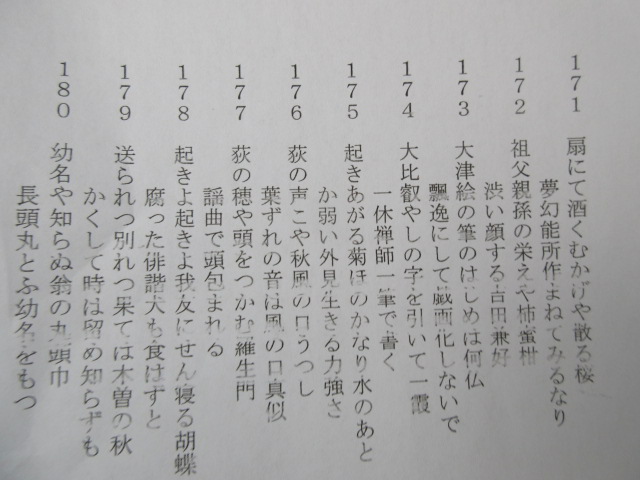 171 扇にて酒くむかげや散る桜
夢幻能所作まねてみるなり
172 祖父親孫の栄えや柿蜜柑
渋い顔する吉田兼好
173 大津絵の筆のはじめは何仏
飄逸にして戯画化しないで
174 大比叡やしの字を引いて一霞
一休禅師一筆で書く
175 起きあがる菊ほのかなり水のあと
か弱い外見生きる力強さ
176 荻の声こや秋風の口うつし
葉ずれの音は風の口真似
177 荻の穂や頭をつかむ羅生門
謡曲で頭包まれる
178 起きよ起きよ我友にせん寝る胡蝶
腐った俳諧犬も食はずと
179 送られつ別れつ果ては木曽の秋
かくして時は留め知らずも
180 幼名や知らぬ翁の丸頭巾
長頭丸とふ幼名をもつ